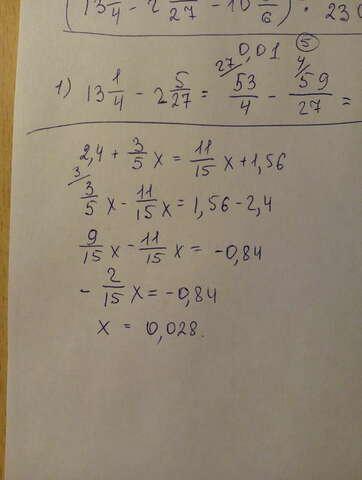 (13 1/4 - 2 /27 - 10 /6) · 230
0,01 (5)
1) 13 1/4 - 2 5/27 = 27/ 53/4 - 4/ 59/27 =
2,4 + 3/5 x = 11/15 x + 1,56
3/ 3/5 x - 11/15 x = 1,56 - 2,4
9/15 x - 11/15 x = -0,84
- 2/15 x = -0,84
x = 0,028.